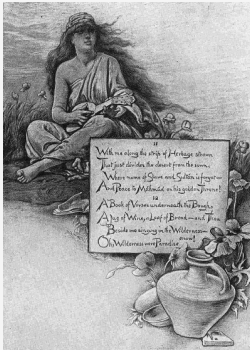 11
With me along the strip of Herbage strown
That just divides the desert from the sown,
Where name of Slave and Sultán is forgot—
And Peace to Mahmúd on his golden Throne!
12
A Book of Verses underneath the Bough,
A Jug of Wine, a Loaf of Bread—and Thou
Beside me singing in the Wilderness—
Oh, Wilderness were Paradise
enow!